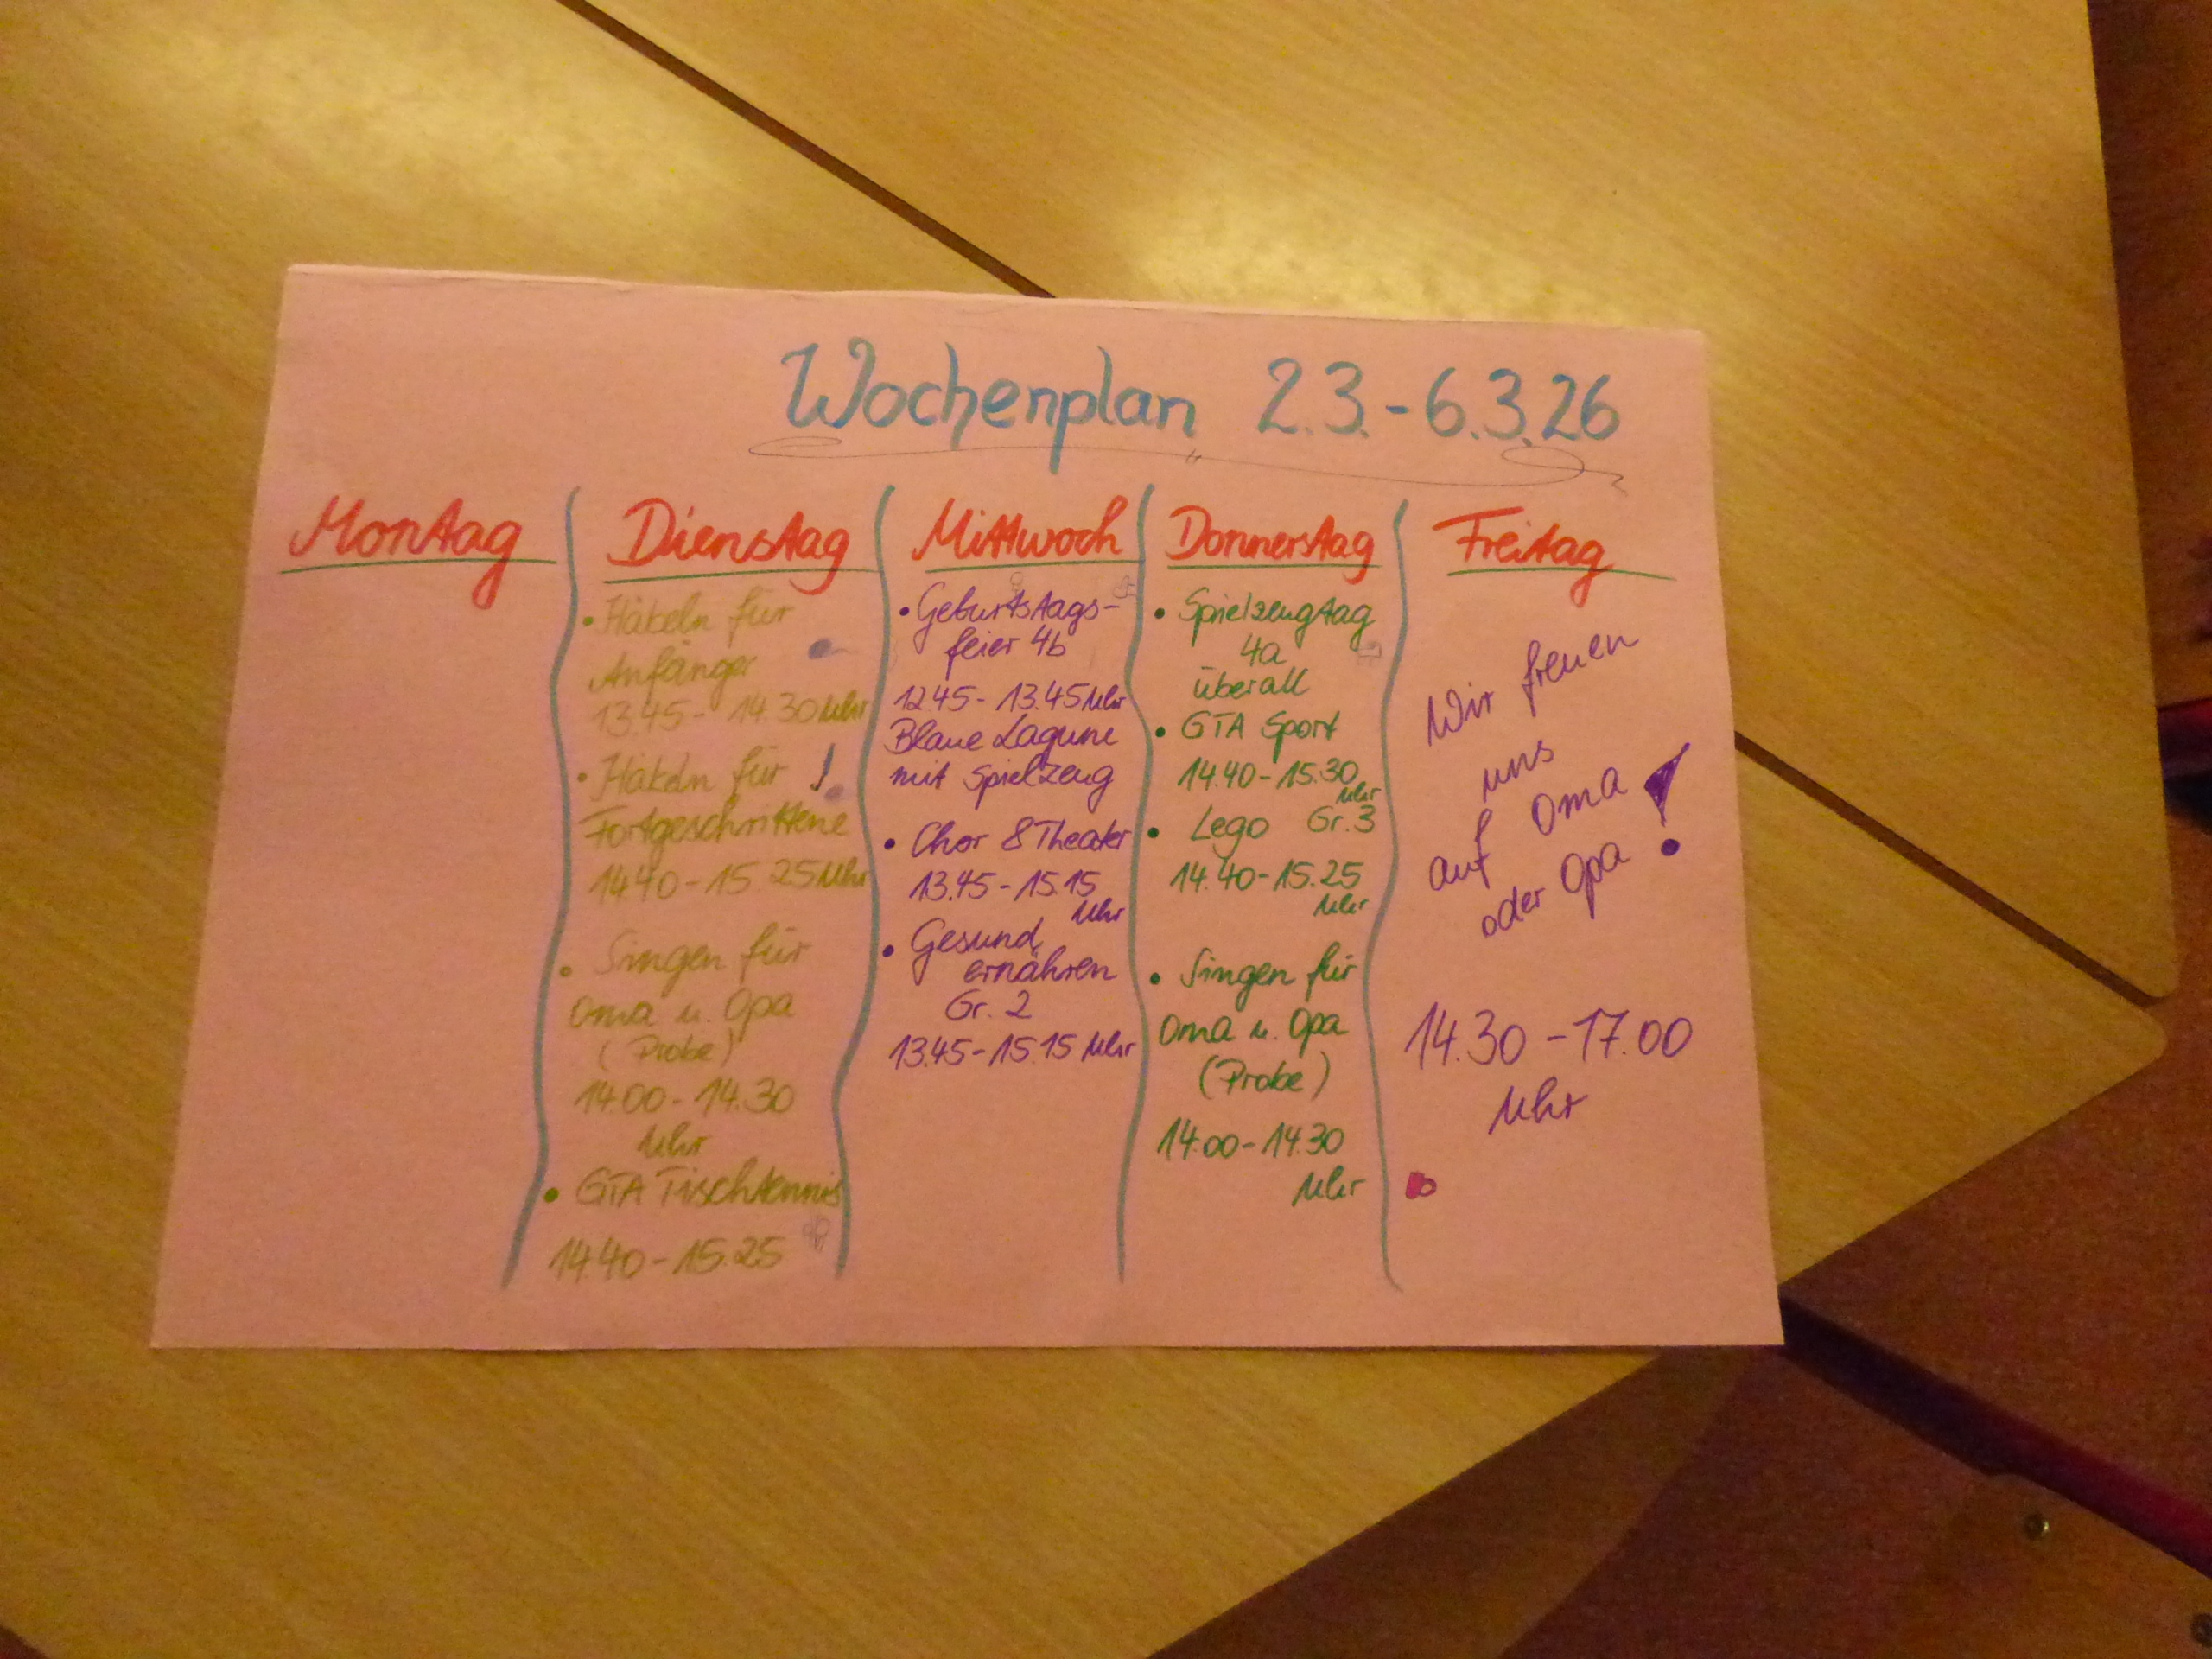 Wochenplan 2.3.-6.3.26
Montag
Dienstag
• Häkeln für
Anfänger
13.45- 14.30 Uhr
• Häkeln für !
Fortgeschrittene
14.40-15.25 Uhr
• Singen für
Oma u. Opa
(Probe)
14.00-14.30
Uhr
• GTA Tischtennis
14.40-15.25
Mittwoch
• Geburtstags-
feier 4b
12.45- 13.45 Uhr
Blaue Lagune
mit Spielzeug
• Chor & Theater
13.45-15.15
Uhr
• Gesund
ernähren
Gr. 2
13.45-15.15 Uhr
Donnerstag
• Spielzeugtag
4a
überall
• GTA Sport
14.40-15.30
Uhr
• Lego Gr.3
14.40-15.25
Uhr
• Singen für
Oma u. Opa
(Probe)
14.00-14.30
Uhr
Freitag
Wir freuen
uns
auf Oma
oder Opa !
14.30-17.00
Uhr